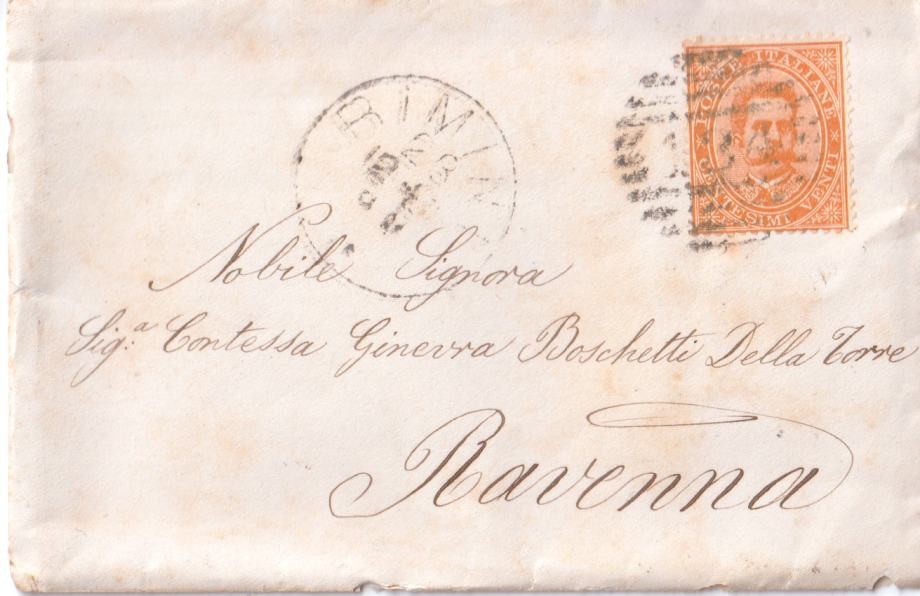 POSTE ITALIANE * CENTESIMI VENTI
RIMINI
Nobile Signora
Sig.ª Contessa Ginevra Boschetti Della Torre
Ravenna